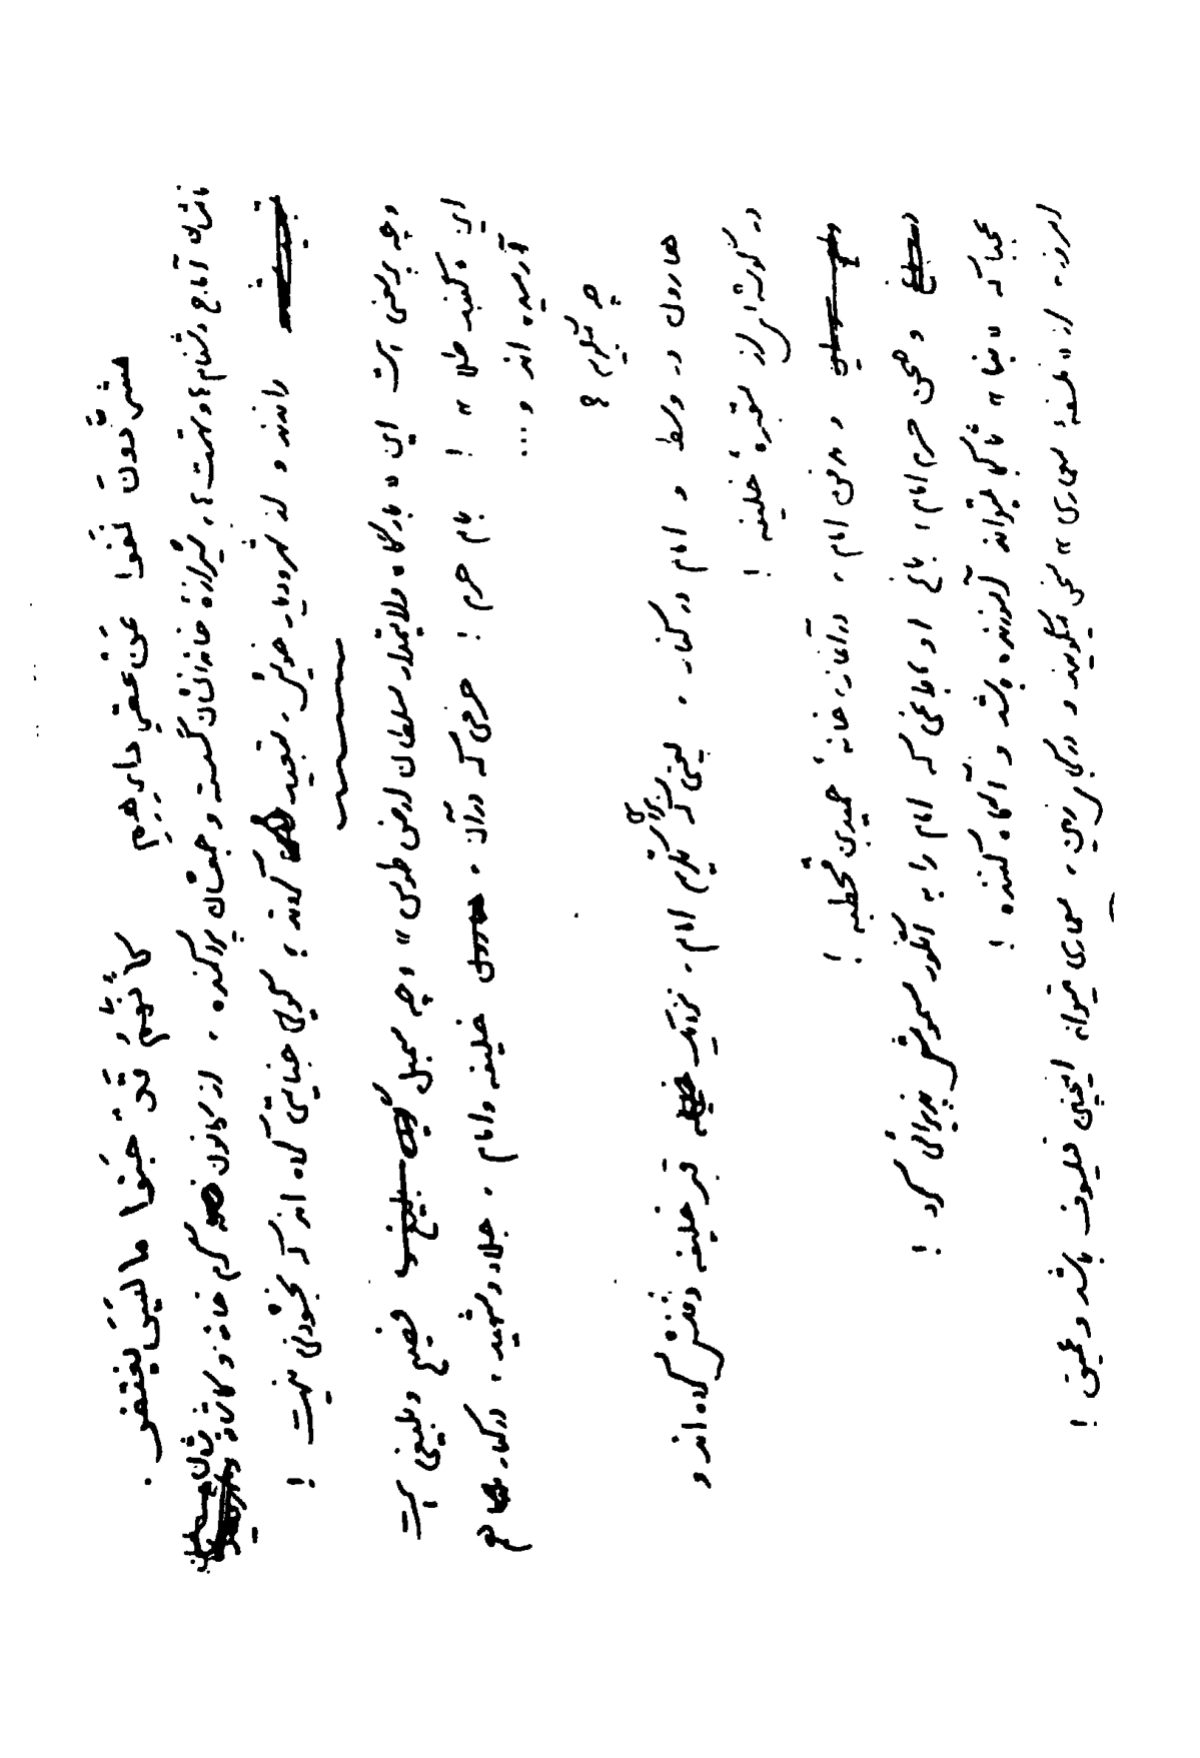 مُشرّدونَ نُفوا عَن عقرِ دارِهِم كأنّهُم قَد جَنَوا ما لیسَ یُغتفر .
آماج دشنام و تهمت ، شیرازهٔ خاندانشان گسست و جمعشان پراکنده ، از کانون گرم خانه و کاشانه شان
راندند و از شهر و دیار خویش ، تبعید کردند ؛ گوئی جنایتی کرده اند که بخشودنی نیست !
و چه پرمعنی است این « بارگاه سلطان ارض طوس » و چه سمبل فصیح و بلیغی است
این « گنبد طلا » ! بام حرم ! حرمی که در آن ، خلیفه و امام ، جلاد و شهید ، در کنار هم
آرمیده اند و ...
چه میگویم ؟
هارون در وسط و امام در کنار ، یعنی که برای تکریم امام ، نزدیک قبر خلیفه دفنش کرده اند و
در گوشه ای از مقبرهٔ خلیفه !
و مدفن امام ، در آغاز ، خانهٔ حمیدبن قحطبه !
و صحن حرم امام ، باغ او ، باغی که امام را به انگور مسمومش پذیرائی کرد !
عجبا که « بنا » تا کجا میتواند آموزنده باشد و آگاه کننده !
امروز ، از « فلسفهٔ معماری » سخن میگویند و در کجای زمین ، معماری میتواند اینچنین فیلسوف باشد و عمیق !